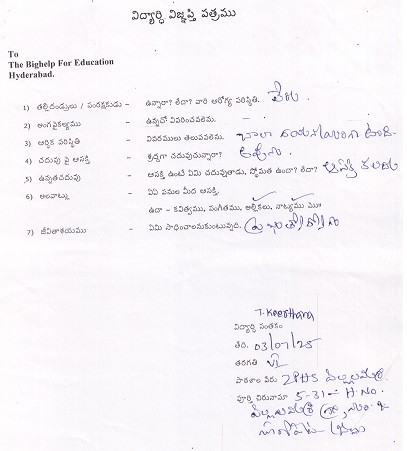 విద్యార్ధి విజ్ఞప్తి పత్రము
To
The Bighelp For Education
Hyderabad.
1) తల్లిదండ్రులు / సంరక్షకుడు - ఉన్నారా? లేదా? వారి ఆరోగ్య పరిస్థితి. లేరు
2) అంగవైకల్యము - ఉన్నచో వివరించవలెను.
3) ఆర్థిక పరిస్థితి - వివరములు తెలుపవలెను. చాలా
4) చదువు పై ఆసక్తి - శ్రద్ధగా చదువుచున్నారా? అవును
5) ఉన్నతచదువు - ఆసక్తి ఉంటే ఏమి చదువుతాడు. స్తోమత ఉందా? లేదా? ఆసక్తి కలదు
6) అలవాట్లు - ఏఏ పనుల మీద ఆసక్తి.
ఉదా - కవిత్వము, సంగీతము, అల్లికలు, నాట్యము మొ॥
7) జీవితాశయము - ఏమి సాధించాలనుకుంటున్నది.
T. Keerthana
విద్యార్ధి సంతకం
తేది. 03/07/25
తరగతి VI
పాఠశాల పేరు ZPHS పిల్లలమర్రి
పూర్తి చిరునామా 5-31- H.No.
పిల్లలమర్రి
సూర్యాపేట